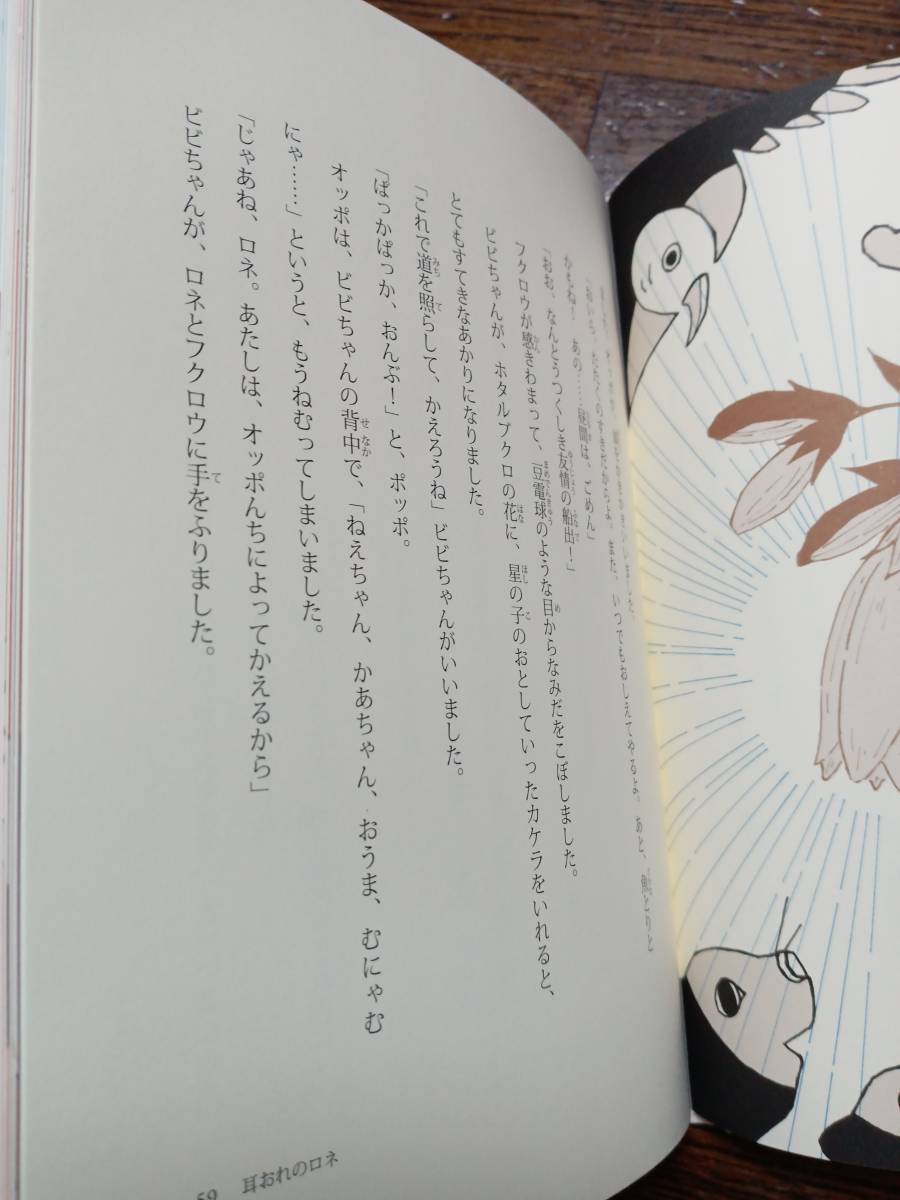 「おいら、たたくのすきだからよ。また、いつでもおしえてやるよ。あと、魚とりと
かもね！　あの……昼間は、ごめん」
「おお、なんとうつくしき友情の船出！」
フクロウが感きわまって、豆電球のような目からなみだをこぼしました。
ビビちゃんが、ホタルブクロの花に、星の子のおとしていったカケラをいれると、
とてもすてきなあかりになりました。
「これで道を照らして、かえろうね」ビビちゃんがいいました。
「ぱっかぱっか、おんぶ！」と、ポッポ。
オッポは、ビビちゃんの背中で、「ねえちゃん、かあちゃん、おうま、むにゃむ
にゃ……」というと、もうねむってしまいました。
「じゃあね、ロネ。あたしは、オッポんちによってかえるから」
ビビちゃんが、ロネとフクロウに手をふりました。
59　耳おれのロネ